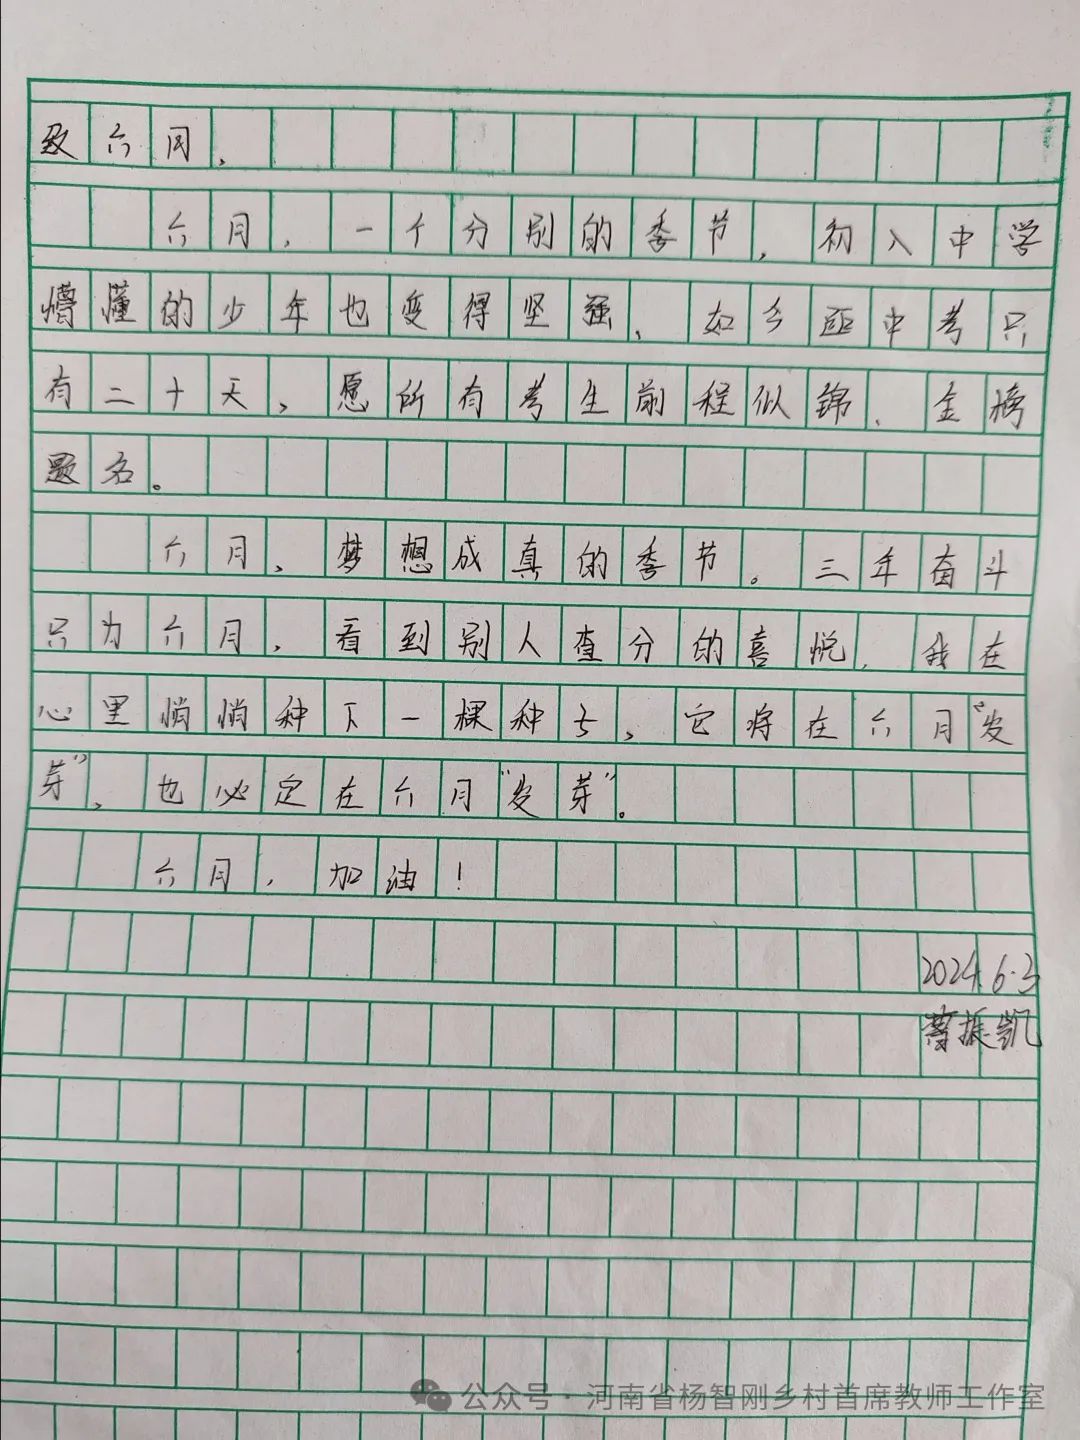 致六月,
六月，一个分别的季节，初入中学
懵懂的少年也变得坚强，如今距中考只
有二十天，愿所有考生前程似锦、金榜
题名。
六月，梦想成真的季节。三年奋斗
只为六月，看到别人查分的喜悦，我在
心里悄悄种下一棵种子，它将在六月“发
芽”，也必定在六月“发芽”。
六月，加油！
2024.6.3
振凯
公众号·河南省杨智刚乡村首席教师工作室